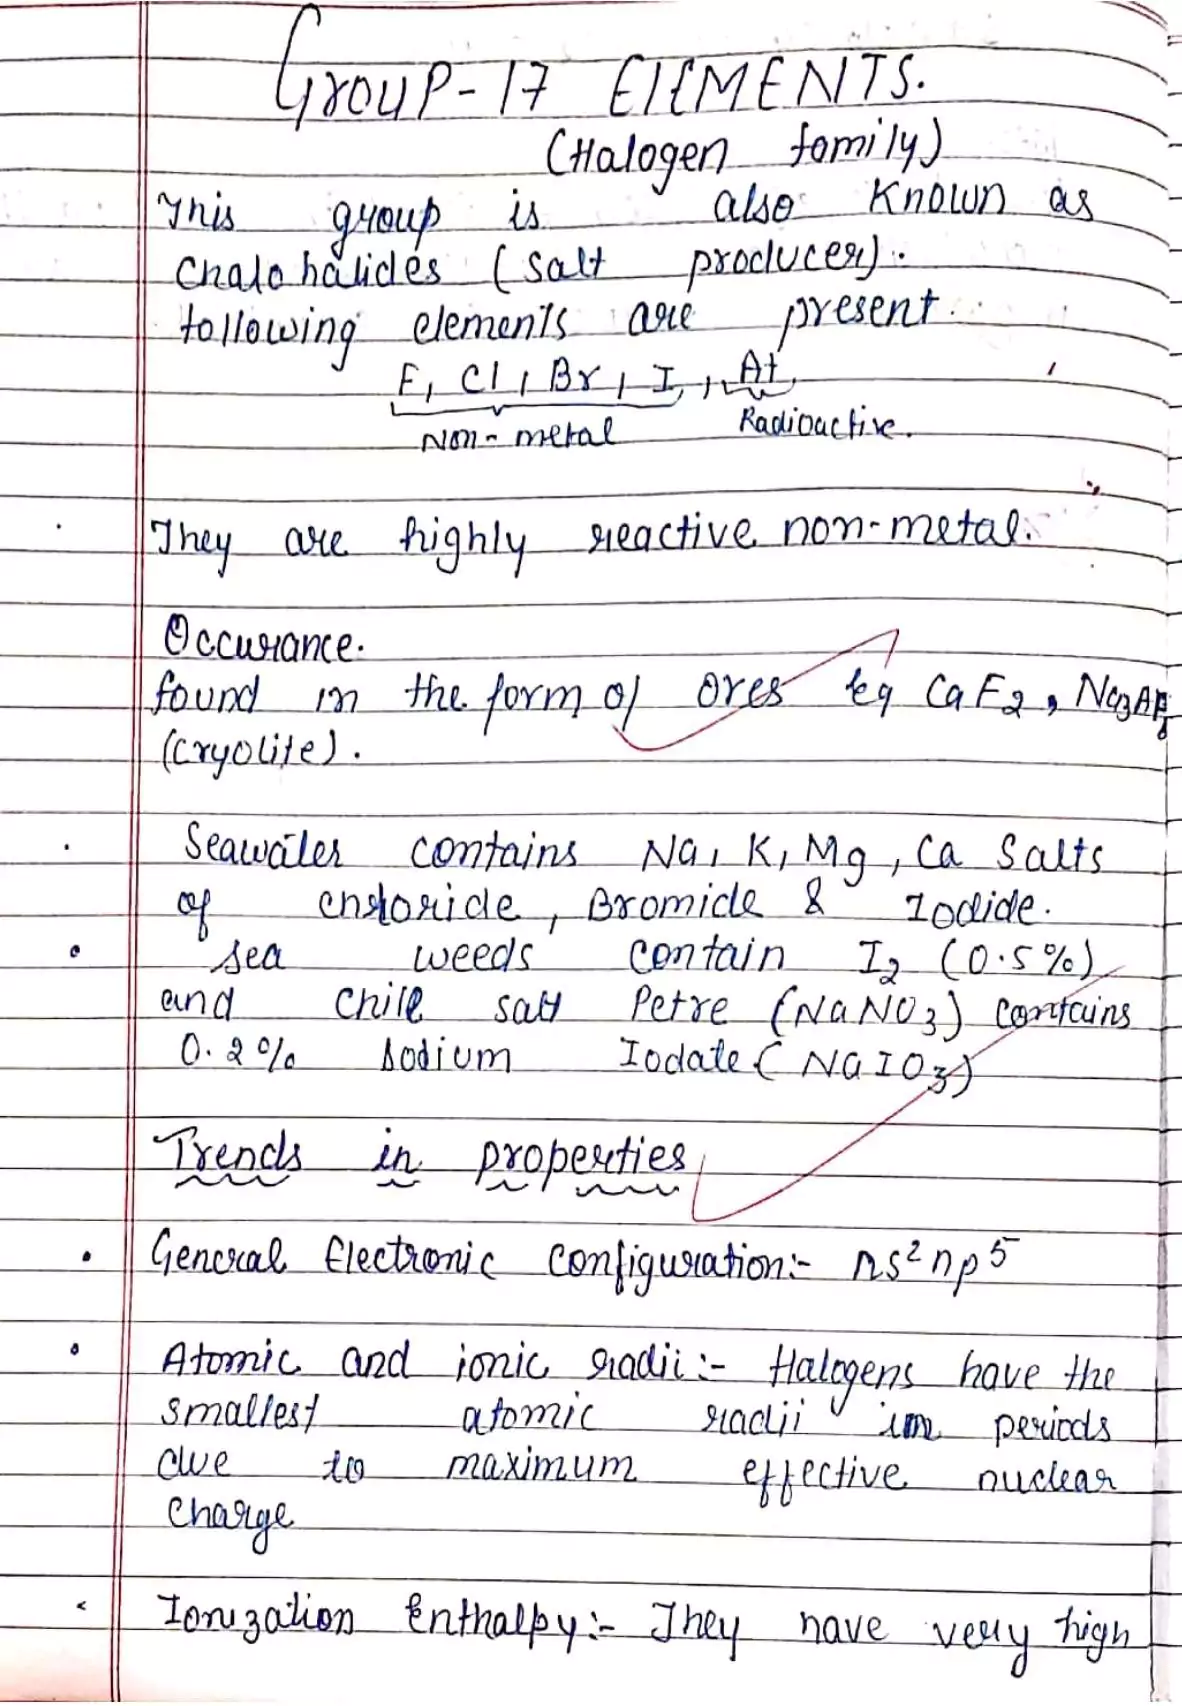 GROUP-17 ElEMENTS.
(Halogen family)
This group is also known as
Chalohalides (salt producer).
following elements are present.
F, Cl, Br, I, At,
Non-metal Radioactive.
They are highly reactive non-metal.
Occurance.
found in the form of ores eg CaF2, Na3AlF6
(cryolite).
Seawater contains Na, K, Mg, Ca Salts
of chloride, Bromide & Iodide.
sea weeds contain I2 (0.5%)
and Chile salt Petre (NaNO3) contains
0.2% sodium Iodate (NaIO3)
Trends in properties
General Electronic configuration:- ns2np5
Atomic and ionic radii:- Halogens have the
smallest atomic radii in periods
due to maximum effective nuclear
charge
Ionization Enthalpy:- They have very high